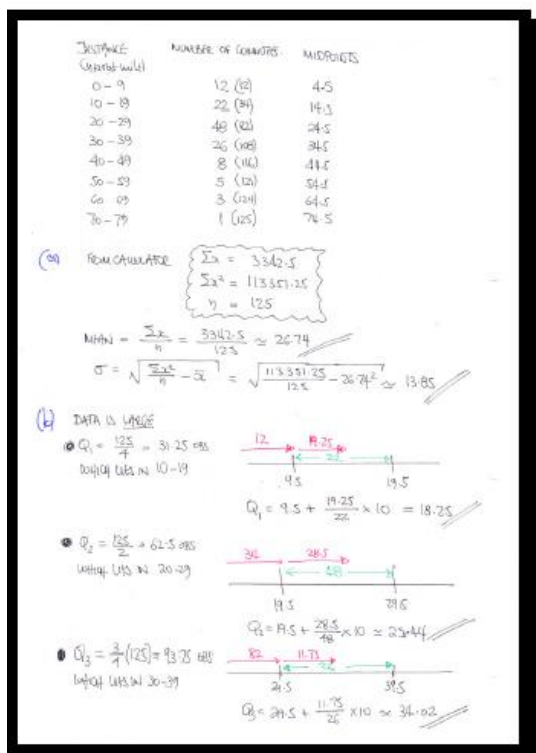 DISTANCE NUMBER OF COMMUTERS MIDPOINTS
(nearest mile)
0 – 9 12 (12) 4.5
10 – 19 22 (34) 14.5
20 – 29 48 (82) 24.5
30 – 39 26 (108) 34.5
40 – 49 8 (116) 44.5
50 – 59 5 (121) 54.5
60 – 69 3 (124) 64.5
70 – 79 1 (125) 74.5
(a) FROM CALCULATOR Σx = 3342.5
Σx² = 113351.25
n = 125
MEAN = Σx/n = 3342.5/125 ≃ 26.74
σ = √(Σx²/n − x̄) = √(113351.25/125 − 26.74²) ≃ 13.85
(b) DATA IS LARGE
Q₁ = 125/4 = 31.25 OBS 12 19.25
WHICH LIES IN 10–19 22
9.5 19.5
Q₁ = 9.5 + 19.25/22 × 10 = 18.25
Q₂ = 125/2 = 62.5 OBS 34 28.5
WHICH LIES IN 20–29 48
19.5 29.5
Q₂ = 19.5 + 28.5/48 × 10 ≃ 25.44
Q₃ = 3/4 (125) = 93.75 OBS 82 11.75
WHICH LIES IN 30–39 26
29.5 39.5
Q₃ = 29.5 + 11.75/26 × 10 ≃ 34.02